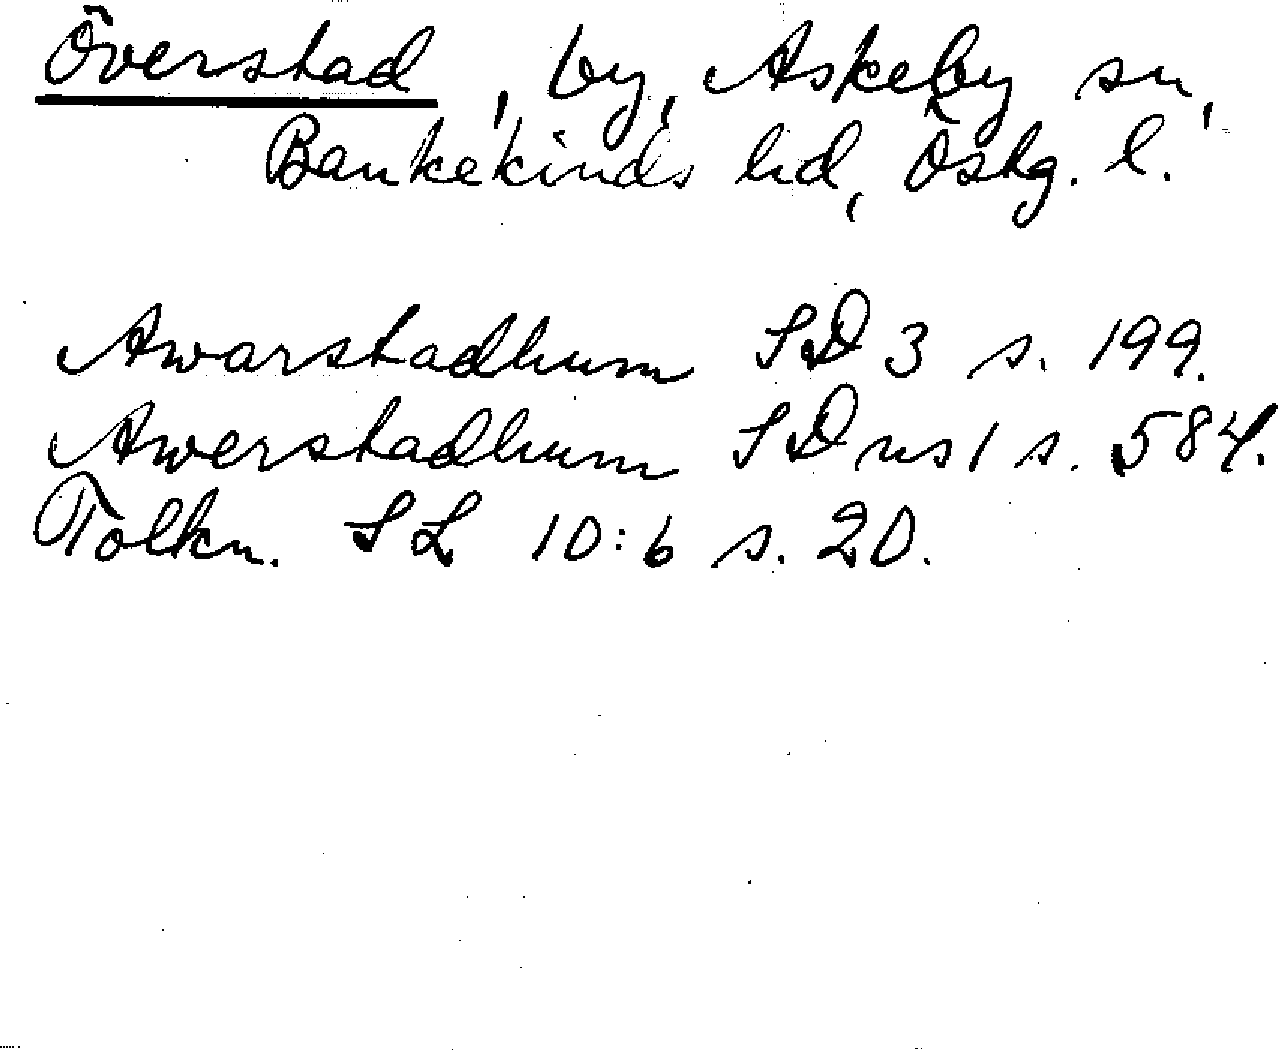 Överstad, by, Askeby sn,
Bankekinds hd, Östg. l.
Awarstadhum SD 3 s. 199.
Awerstadhum SD ns 1 s. 584.
Tolkn. SL 10:6 s. 20.